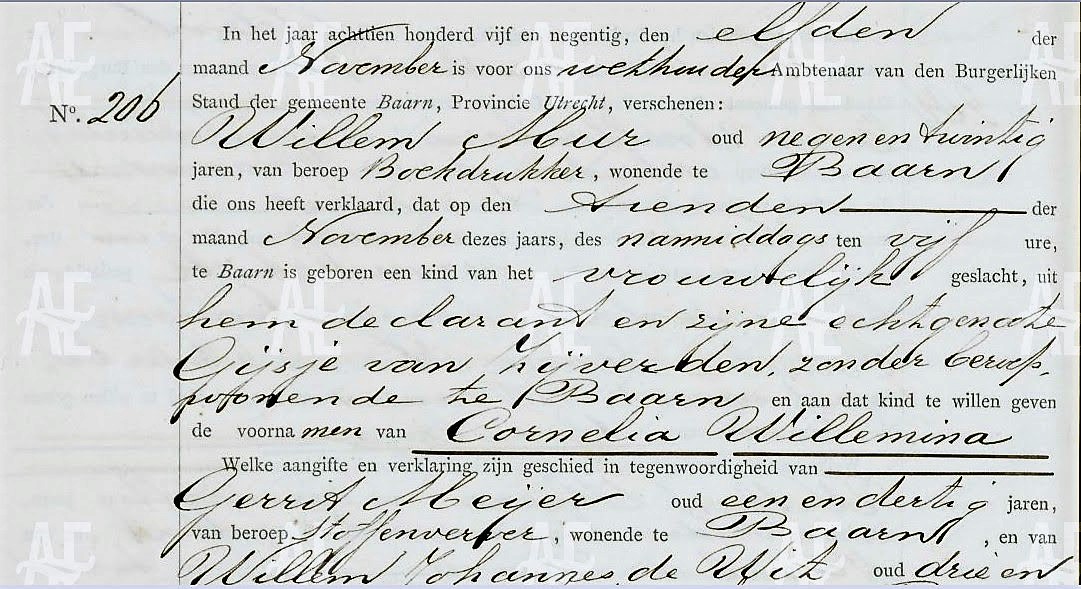 In het jaar achttien honderd vijf en negentig, den elfden der
maand November is voor ons, wethouder Ambtenaar van den Burgerlijken
No. 206 Stand der gemeente Baarn, Provincie Utrecht, verschenen:
Willem Mur oud negen en twintig
jaren, van beroep Boekdrukker, wonende te Baarn
die ons heeft verklaard, dat op den tienden der
maand November dezes jaars, des namiddags ten vijf ure,
te Baarn is geboren een kind van het vrouwelijk geslacht, uit
hem declarant en zijne echtgenoote
Gijsje van Zijverden, zonder beroep,
wonende te Baarn en aan dat kind te willen geven
de voornamen van Cornelia Willemina
Welke aangifte en verklaring zijn geschied in tegenwoordigheid van
Gerrit Meijer oud een en dertig jaren,
van beroep Stoffenverver, wonende te Baarn, en van
Willem Johannes de Wit oud drie en